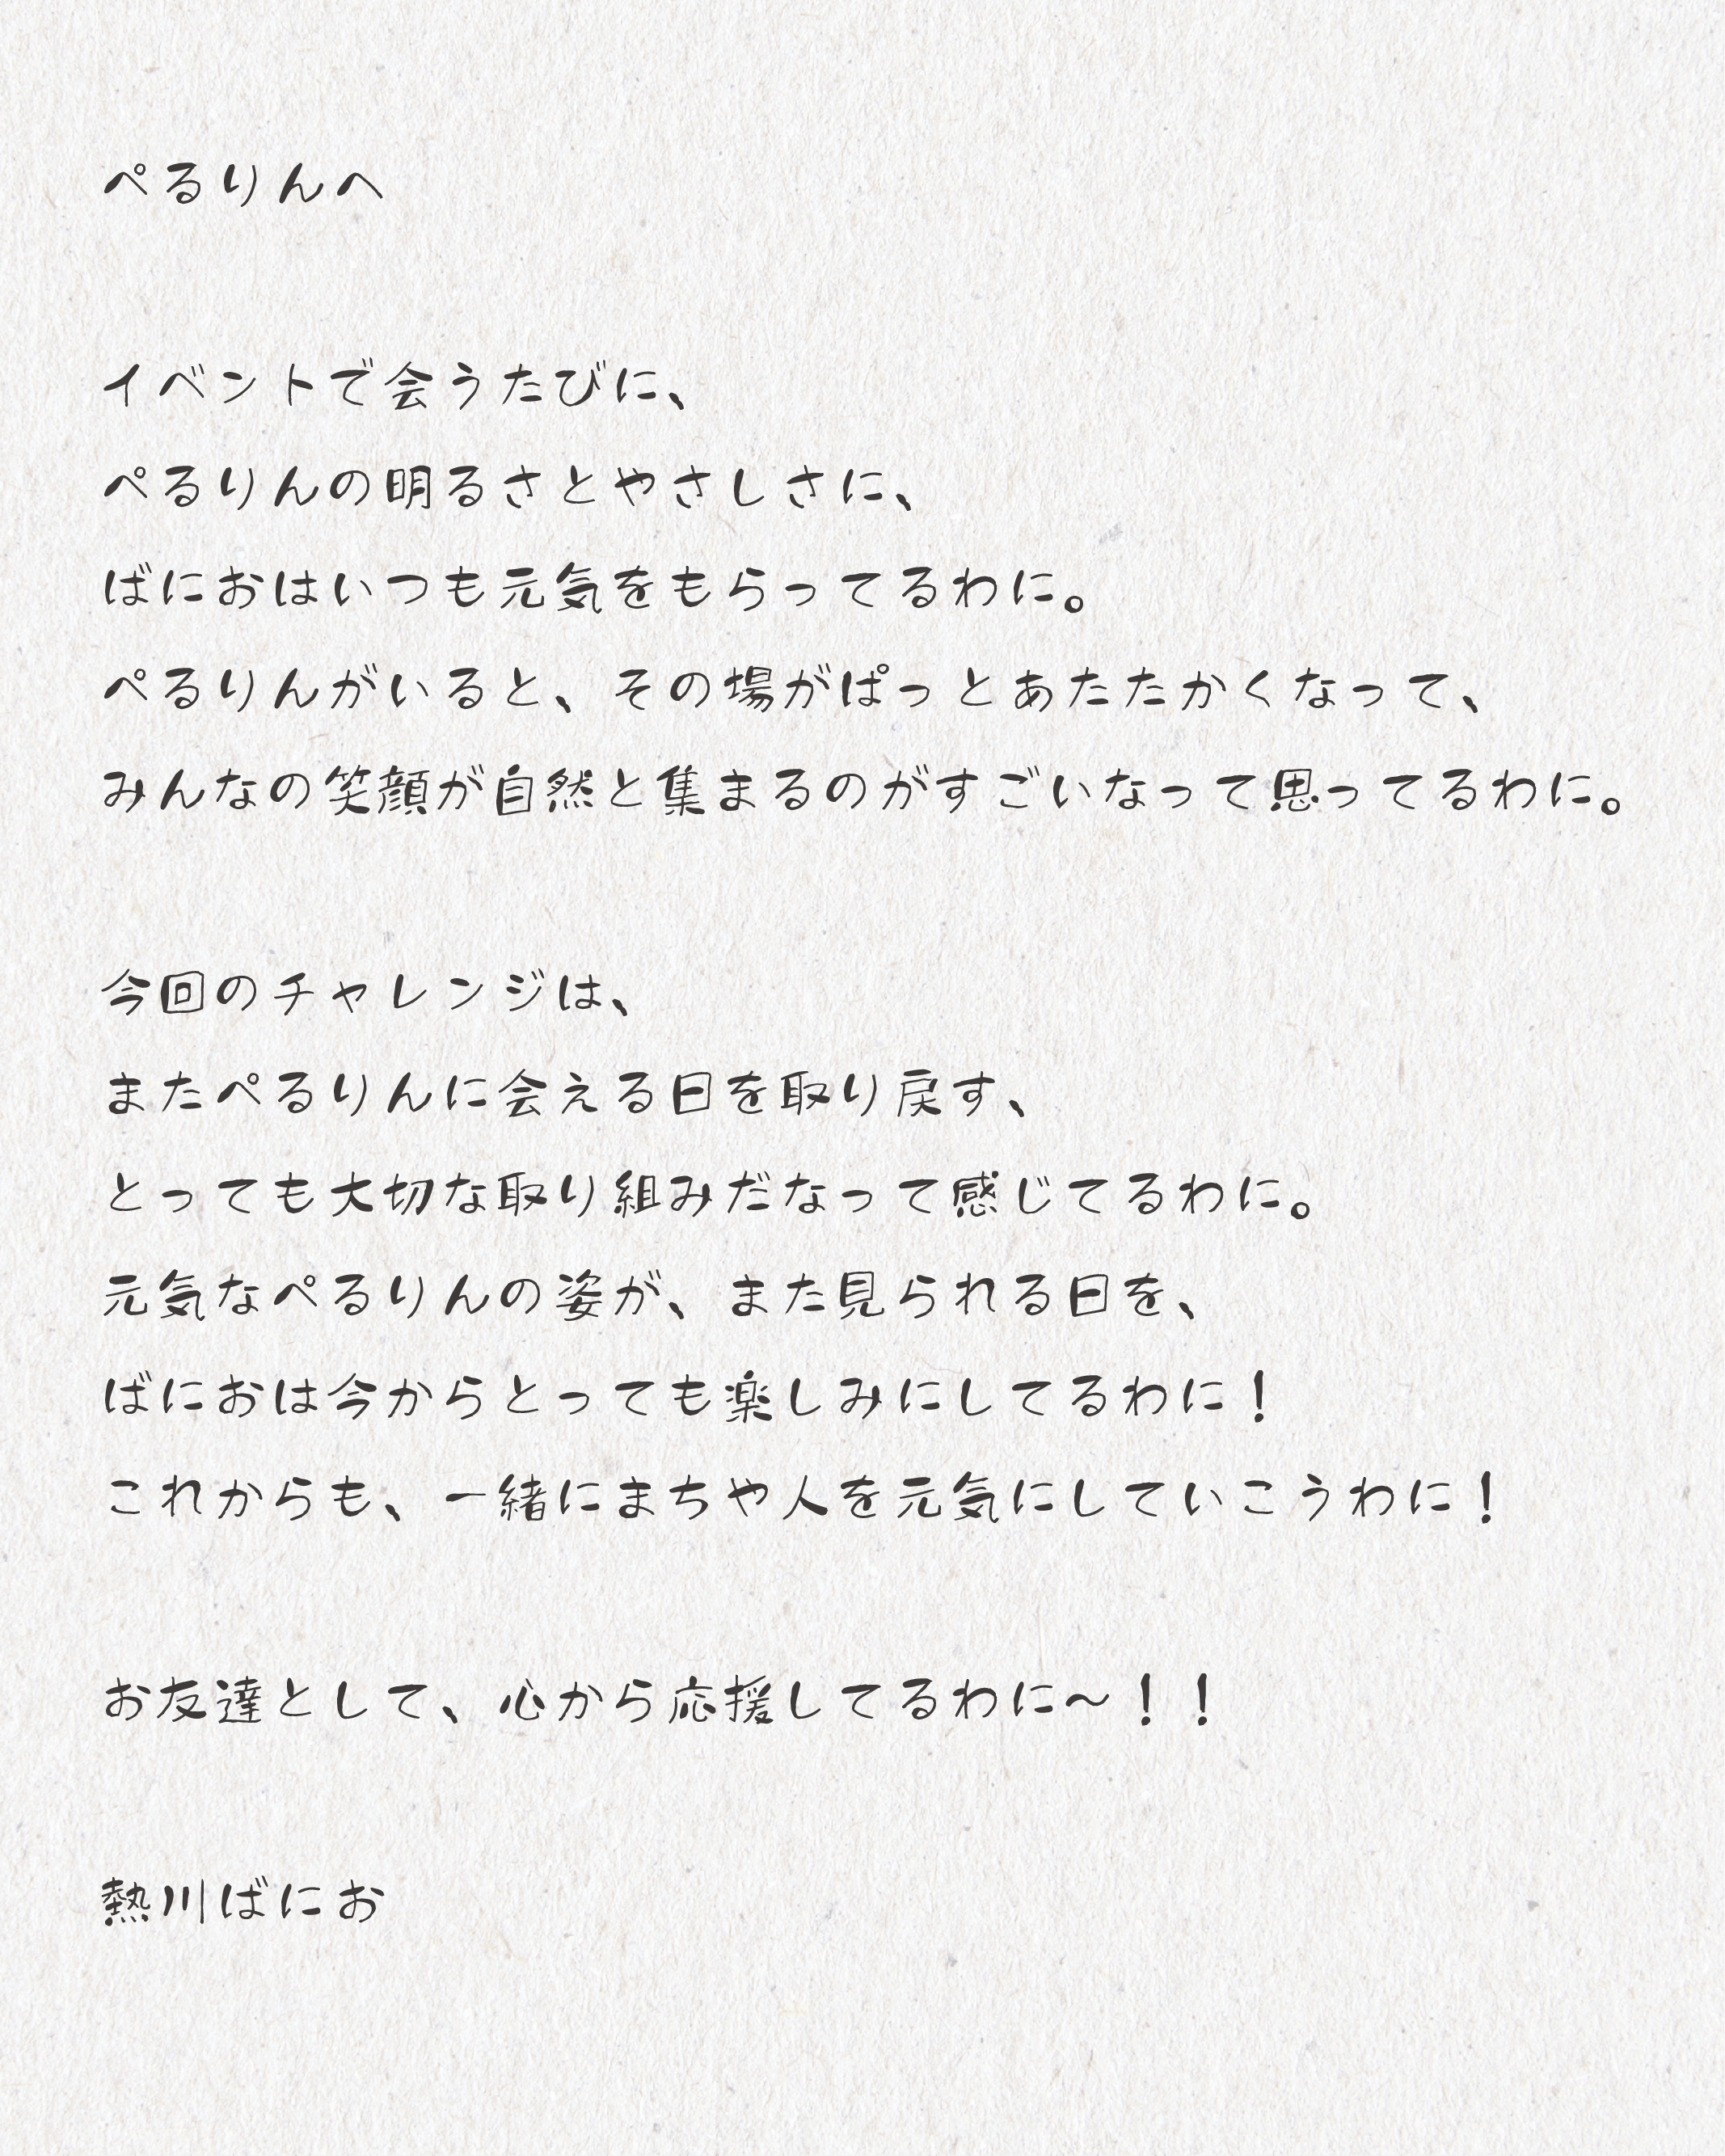 ぺるりんへ
イベントで会うたびに、
ぺるりんの明るさとやさしさに、
ばにおはいつも元気をもらってるわに。
ぺるりんがいると、その場がぱっとあたたかくなって、
みんなの笑顔が自然と集まるのがすごいなって思ってるわに。
今回のチャレンジは、
またぺるりんに会える日を取り戻す、
とっても大切な取り組みだなって感じてるわに。
元気なぺるりんの姿が、また見られる日を、
ばにおは今からとっても楽しみにしてるわに！
これからも、一緒にまちや人を元気にしていこうわに！
お友達として、心から応援してるわに〜！！
熱川ばにお